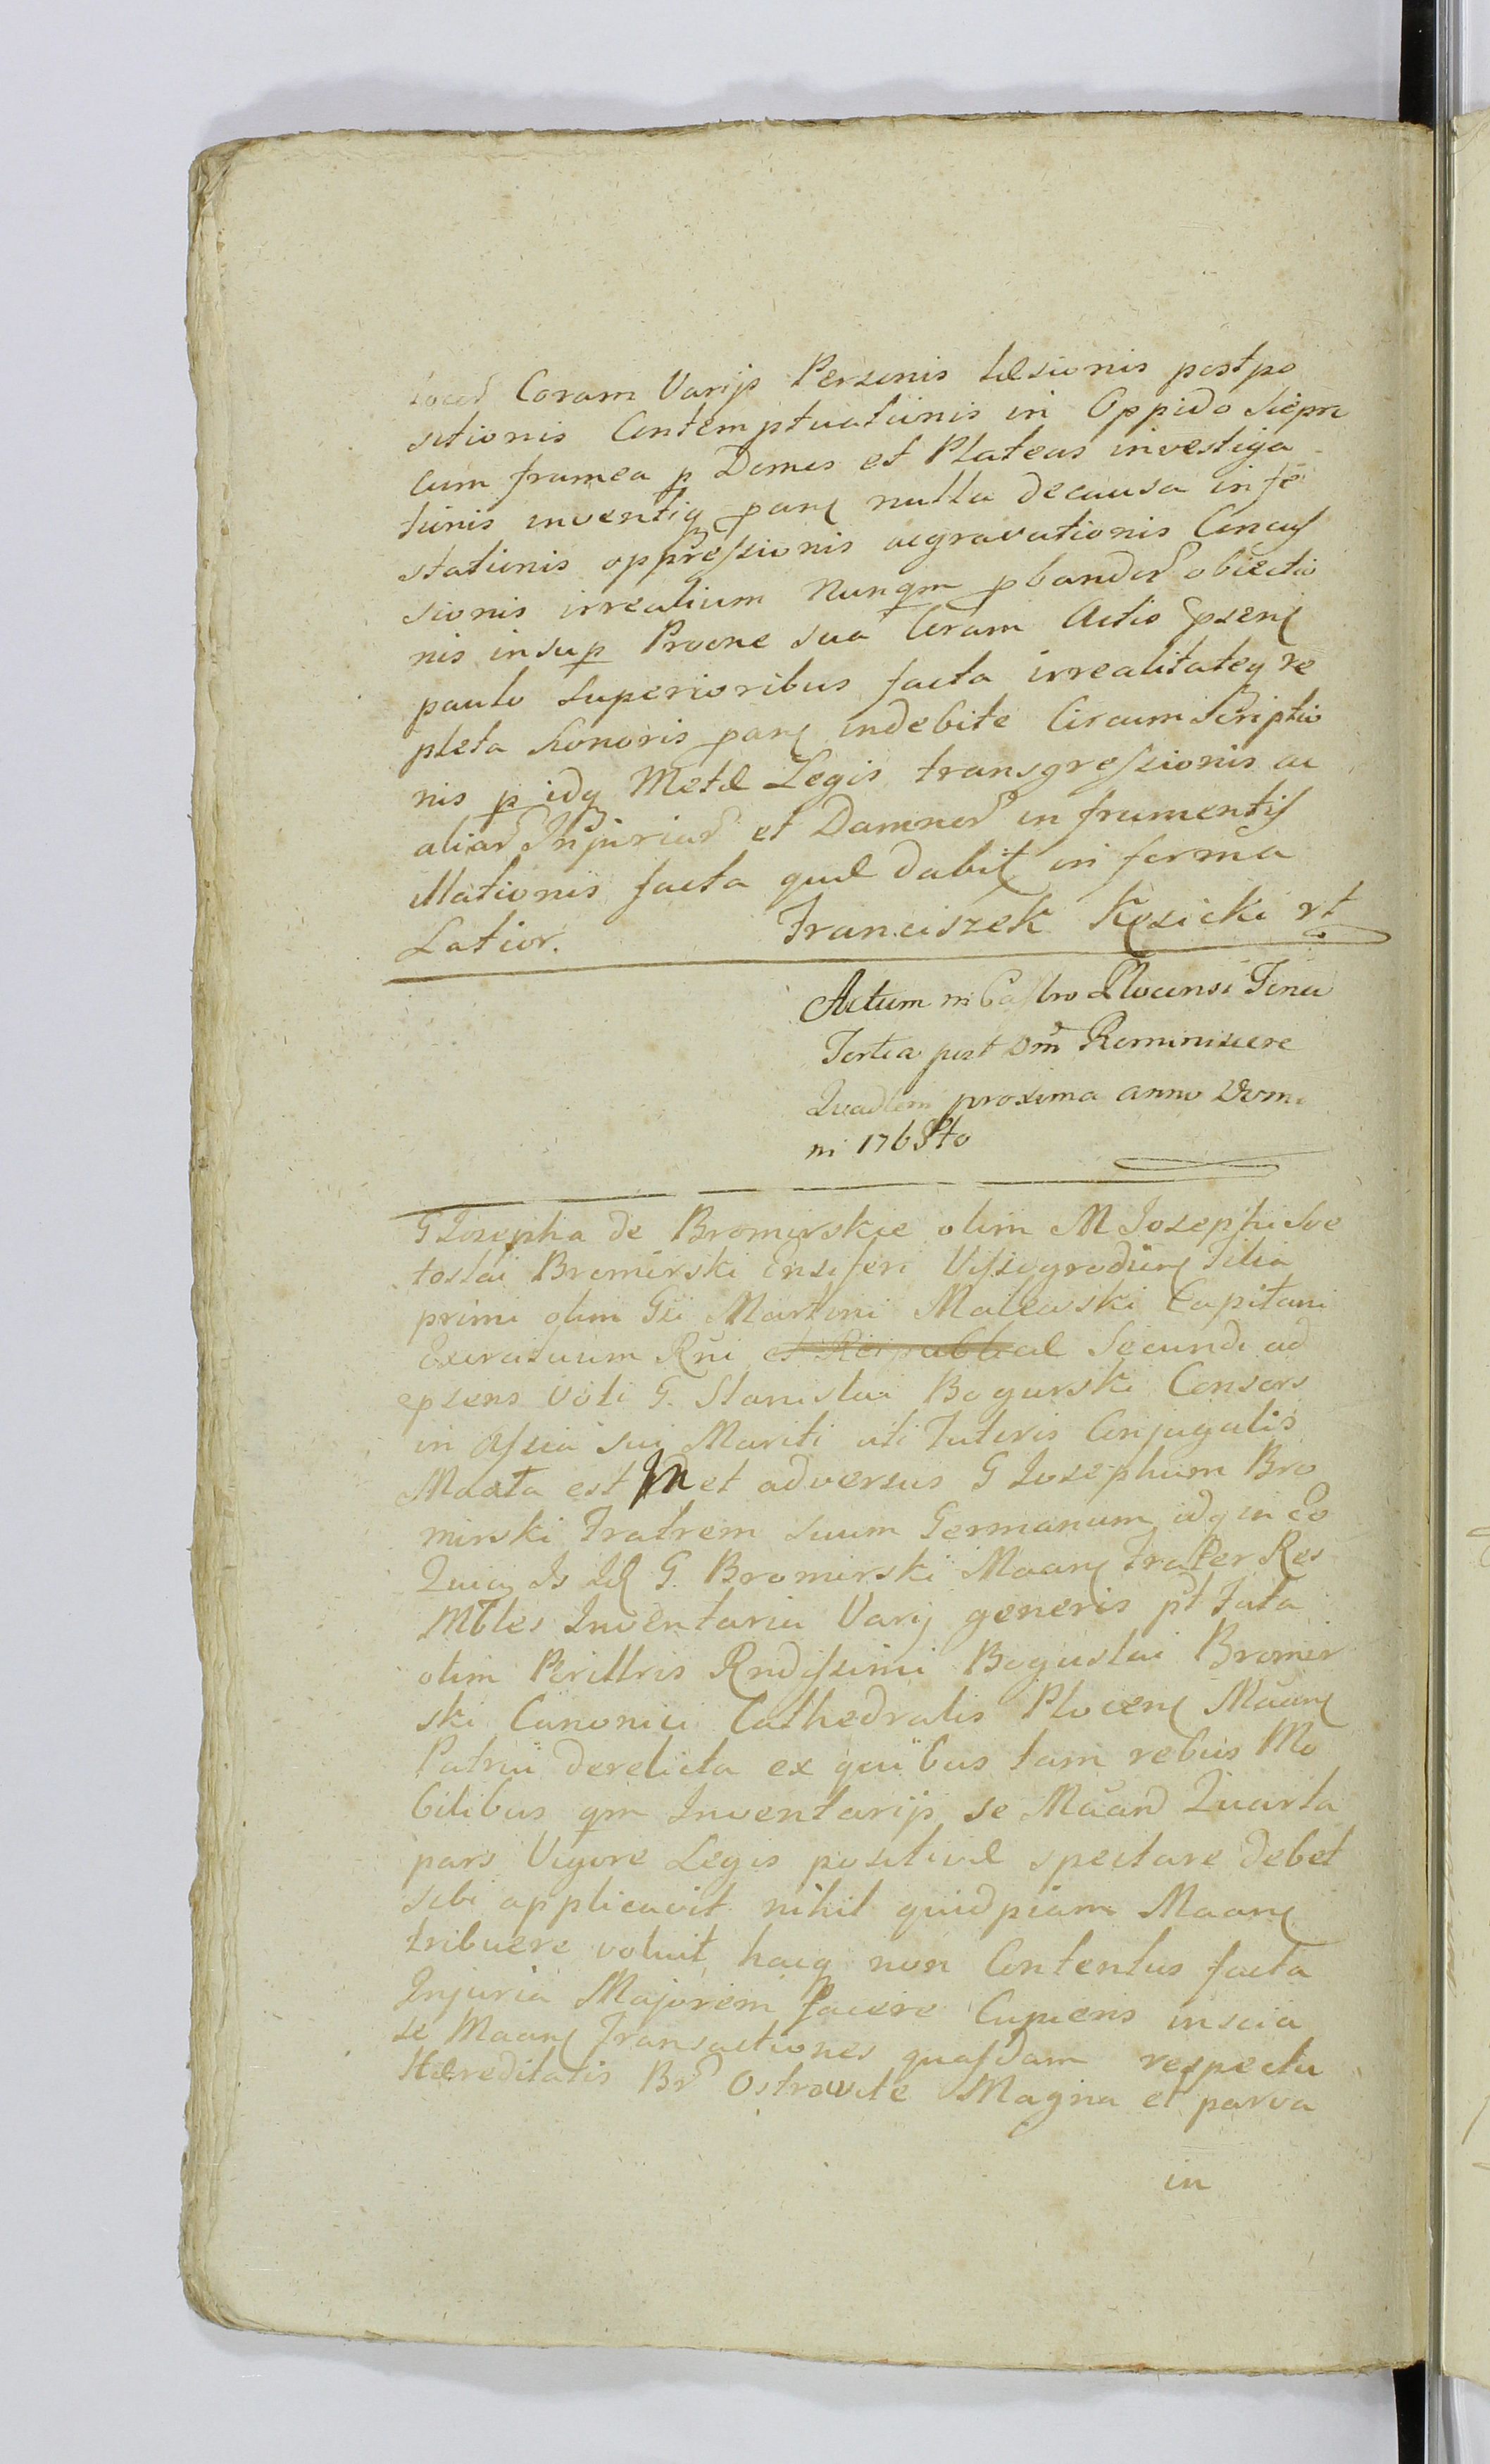 Coram Varijs Personis Læsionis postpo
sitionis Contemptuationis in Oppido Siepre
Cum framea p Domos et Plateas investiga
tionis inventiq parq nulla decausa infe
stationis oppressionis aggravationis Concus
sionis irrealium Nunqm pbandor obiectio
nis insup Provne sua Coram Actis pseng
paulo Superioribus facta irrealitateq re
pleta honoris parq indebite Circumscriptio
nis p idq Metæ Legis transgressionis ac
aliar Injuriar et Damnor in frumentis
illationis facta quæ dabit in forma
Latior. Franciszek Kosicki rt
Actum in Castro Plocensi Feria
Tertia post Dm̃ Reminiscere
Quadlem proxima anno Domi
ni 1768to
G Josepha de Bromirskie olim M Josephi Swe
toslai Bromirski Ensiferi Vissogrodieng Filia
primi olim Gsi Martini Malewski Capitani
Exercituum Rni et Reipublicæ Secundi ad
epsens Voti G. Stanislai Bogurski Consors
in Assia sui Mariti uti Tutoris Conjugalis
Maata est In et adversus G Josephum Bro
mirski Fratrem suum Germanum idq in Eo
Quia Is Id G. Bromirski Maang Frater Res
Mbles Inventaria Varij generis pt Fata
olim Perillris Rndissimi Boguslai Bromir
ski Canonici Cathedralis Ploceng Maang
Patrui derelicta ex quibus tam rebus Mo
bilibus qm Inventarijs se Maand Quarta
pars Vigore Legis positivæ spectare debet
sibi applicavit nihil quidpiam Maang
tribuere voluit hacq non Contentus facta
Injuria Majorem facere Cupiens inscia
se Maang Transactiones quasdam respectu
Hæreditatis Br Ostrowite Magna et parva
in